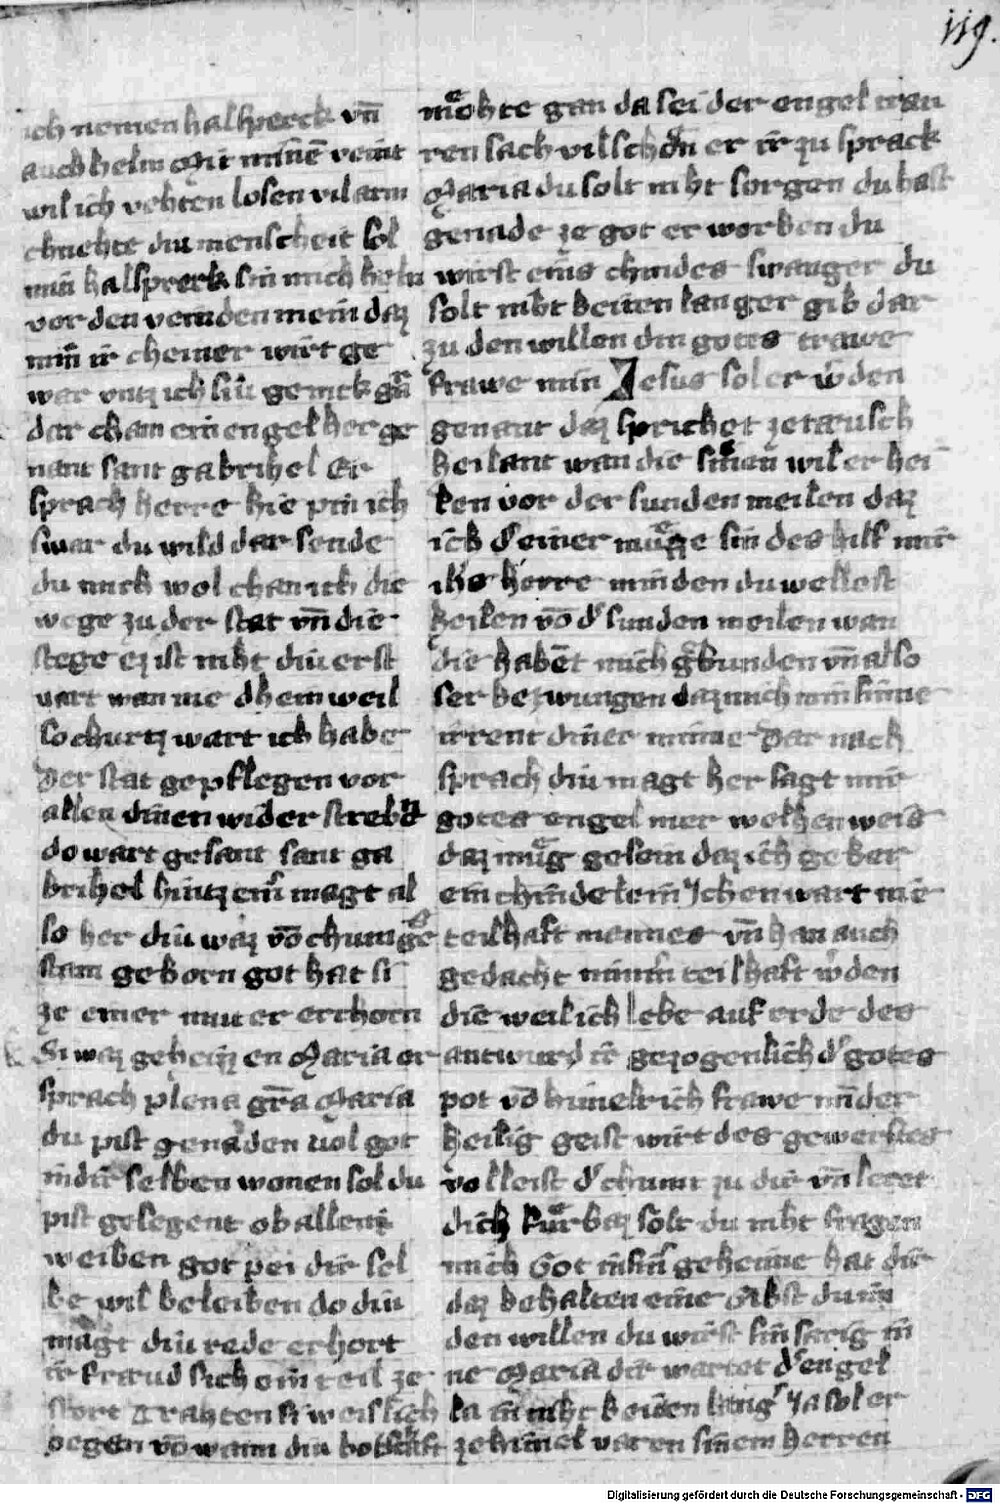 119.
ich nemen halsperck vn̄
auch helm Mit minē veint
wil ich vehten losen vil arm
chnehte diu menscheit sol
min halsperck sin mich heln
vor den veinden mein daz
min ir cheiner wirt ge
war vntz ich hin genick gā
dar cham ein engel her ge
nant sant gabrihel Er
sprach herre hie pin ich
swar du wild dar sende
du mich wol chan ich die
wege zu der stat vn̄ die
stege ez ist niht diu erst
vart wan nie dhein weil
so churtz wart ich habe
der stat gepflegen vor
allen dinen wider strebn̄
do wart gesant sant ga
brihel hintz einͬ magt al
so her diu waz vō chunige
stam geborn got hat si
ze einer muter erchorn
Si waz geheizzen Maria er
sprach plena grā Maria
du pist genaden vol got
in dir selben wonen sol du
pist gesegent ob allen
weiben got pei dir sel
be wil beleiben do diu
magt diu rede erhort
ir fraud sich ein teil ze
stort Trahten si weislich
gegen vō wann diu botschaft
moͤhte gan da sei der engel trau
ren sach vil schōn er ir zu sprach
Maria du solt niht sorgen du hast
genade ze got erworben du
wirst eins chindes swanger du
solt niht beiten langer gib dar
zu den willen din gotes trawe
frawe min Jesus sol er wͬden
genant daz sprichet ze tæusch
heilant wan die sinen wil er hei
len vor der sunden meilen daz
ich dͬ einer muͤge sin des hilf mir
ihs herre min den du wellest
heilen vō dͬ sunden meilen wan
die habēt mich gͤbunden vn̄ also
ser bezwungen daz mich min sinne
irrent diner minne Dar nach
sprach diu magt her sagt mir
gotes engel mer welhen weis
daz muͤg gesein daz ich geber
ein chindelein Ichen wart nie
teilhaft mannes vn̄ han auch
gedacht nimͬ teilhaft wͬden
die weil ich lebe auf erde des
antwurd ir gezogenlich dͬ gotes
pot vō himelrich frawe min der
heilig geist wirt des gewerftes
volleist dͬ chumt zu dir vn̄ leret
dich fuͤrbaz solt du niht fragen
mich Got in sinͬ geheime hat dir
daz behalten eine Gibst du im
den willen du wirst sin sarig in
ne Maria dir wartet dͬ engel
la in niht beiten langͬ Ja sol er
ze himel varen sinem herren